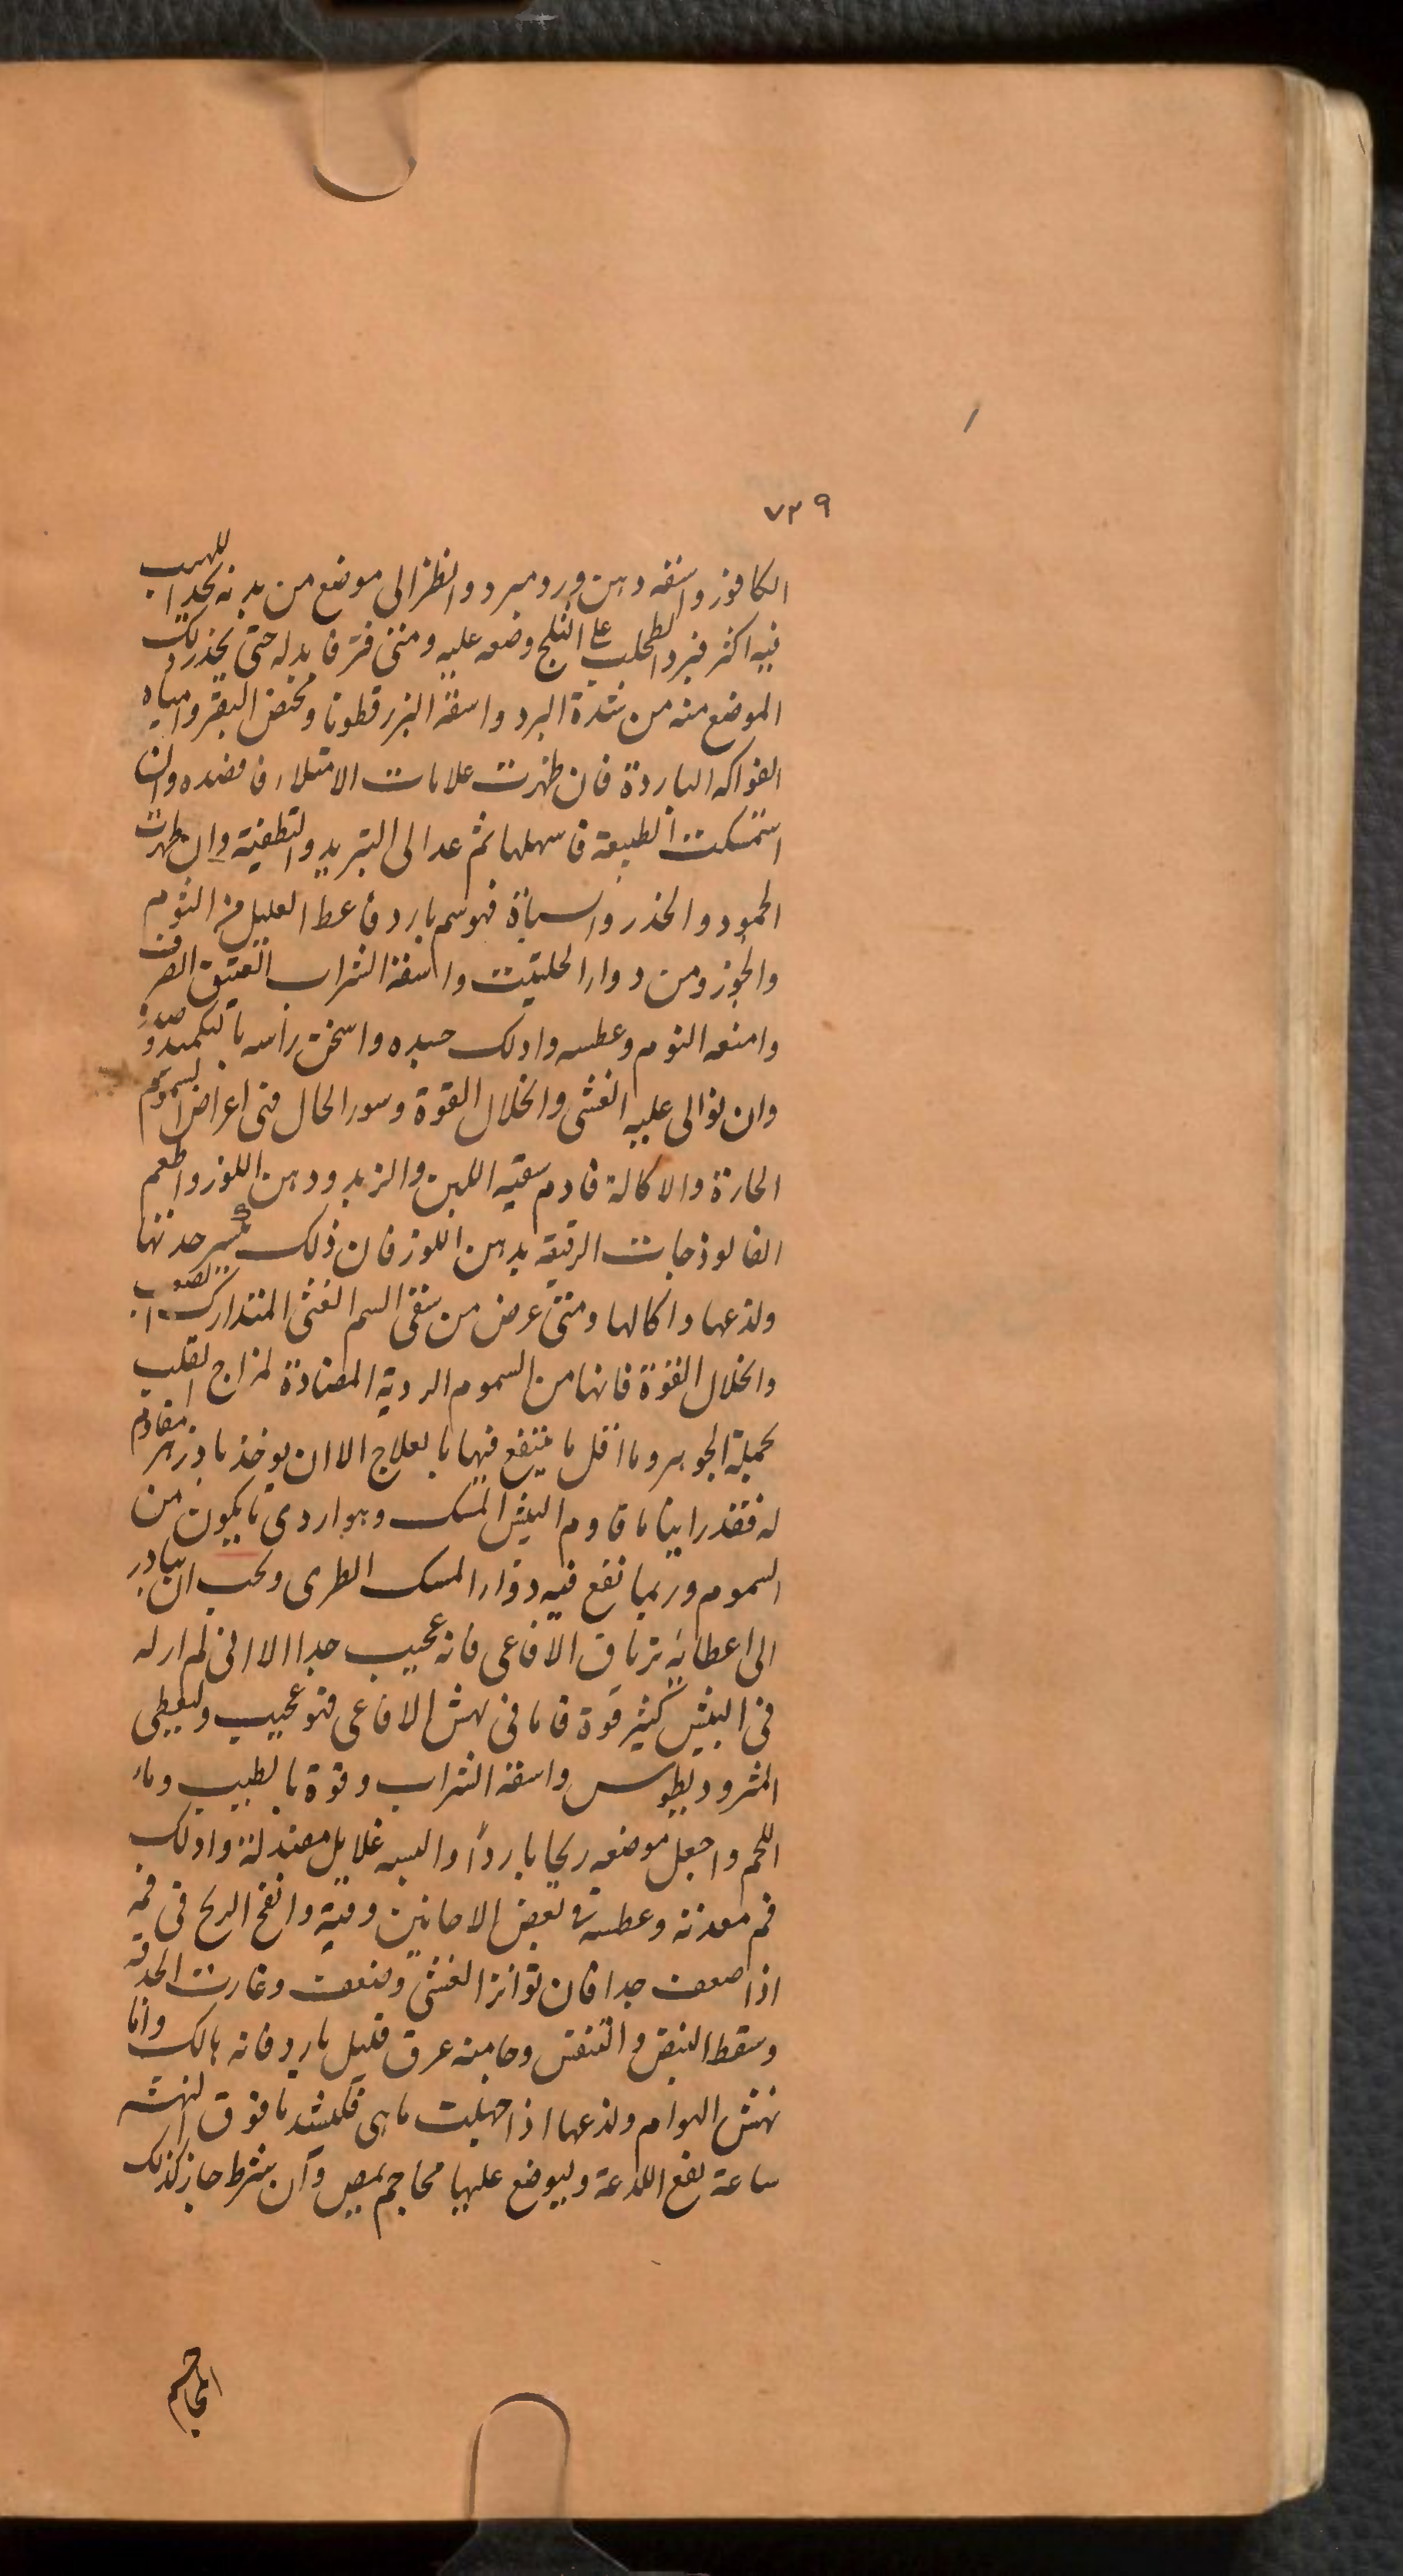 ٧٣٩
الكافور واسقه دهن ورد مبرد وانظر الى موضع من بدنه تجد اللهيب
فيه اكثر فبرد الطحلب على الثلج وضعه عليه ومتى فتر فابدله حتى يخدر ذلك
الموضع منه من شدة البرد واسقه البزرقطونا ومخيض البقر ومياه
الفواكه الباردة فان ظهرت علامات الامتلاء فافصده وان
استمسكت الطبيعة فاسهلها ثم عد الى التبريد والتطفية وان ظهرت
الجمود والخدر والسباة فهو سم بارد فاعط العليل من الثوم
والجوز ومن دواء الحلتيت واسقه الشراب العتيق الصرف
وامنعه النوم وعطسه وادلك جسده واسخن راسه بالتكميد و
وان توالى عليه الغشى وانحلال القوة وسوء الحال فى اعراض السموم
الحارة والاكالة فادم سقيه اللبن والزبد ودهن اللوز واطعم
الفالوذجات الرقيقة بدهن اللوز فان ذلك يكسر حدتها
ولذعها واكالها ومتى عرض من سقى السم الغشى المتدارك الصعب
وانحلال القوة فانها من السموم الردية المضادة لمزاج القلب
بجملة الجوهر وما اقل ما ينتفع فيها بالعلاج الا ان يوخذ بادزهر مقاوم
له فقد راينا ما قاوم البيش المسك وهو اردى ما يكون من
السموم وربما نفع فيه دواء المسك الطرى ويجب ان يبادر
الى اعطائه ترياق الافاعى فانه عجيب جدا الا انى لم ار له
فى البيش كثير قوة فاما فى نهش الافاعى فهو عجيب وليعطى
المثروديطوس واسقه الشراب وقوة بالطيب وماء
اللحم واجعل موضعه ريحا باردا والبسه غلايل مصندلة وادلك
فم معدته وعطسه فى بعض الاحايين وقيه وانفخ الريح فى فمه
اذا ضعف جدا فان تواتر الغشى وضعفت وغارت الحدقة
وسقط النبض والتنفس وجا منه عرق قليل بارد فانه هالك واما
نهش الهوام ولذعها اذا جهلت ما هى فليشد ما فوق النهشه
ساعة يقع اللدغة وليوضع عليها محاجم بمص وان شرط جاز كذلك
المحاجم